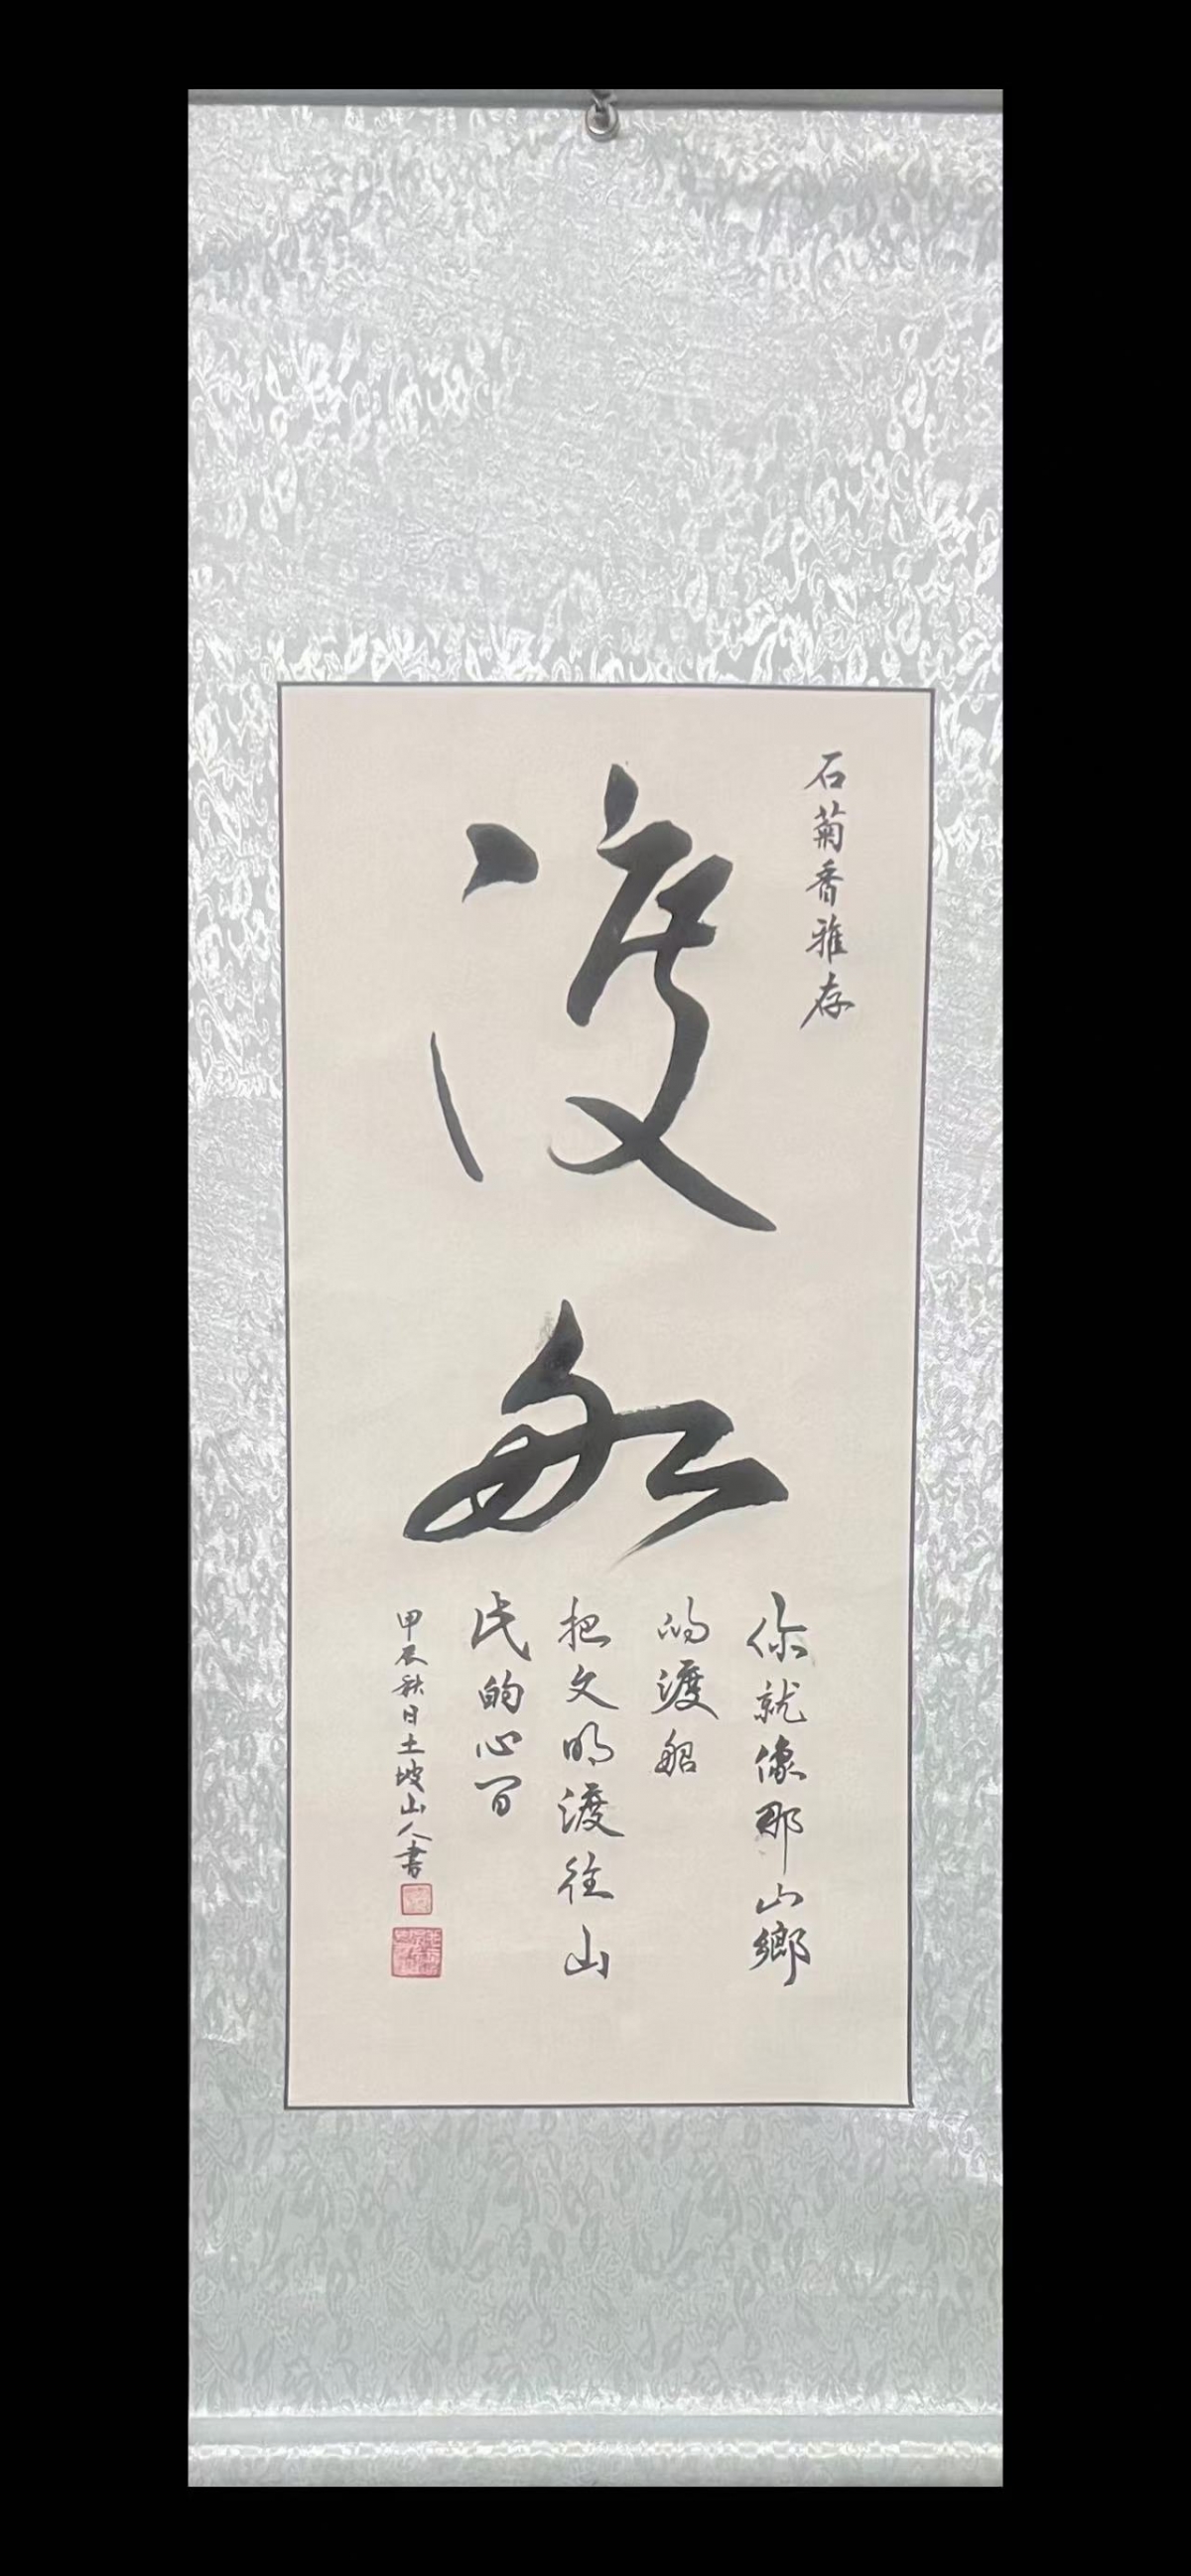 石菊香雅存
渡船
你就像那山鄉
的渡船
把文明渡往山
民的心间
甲辰秋日土坡山人書